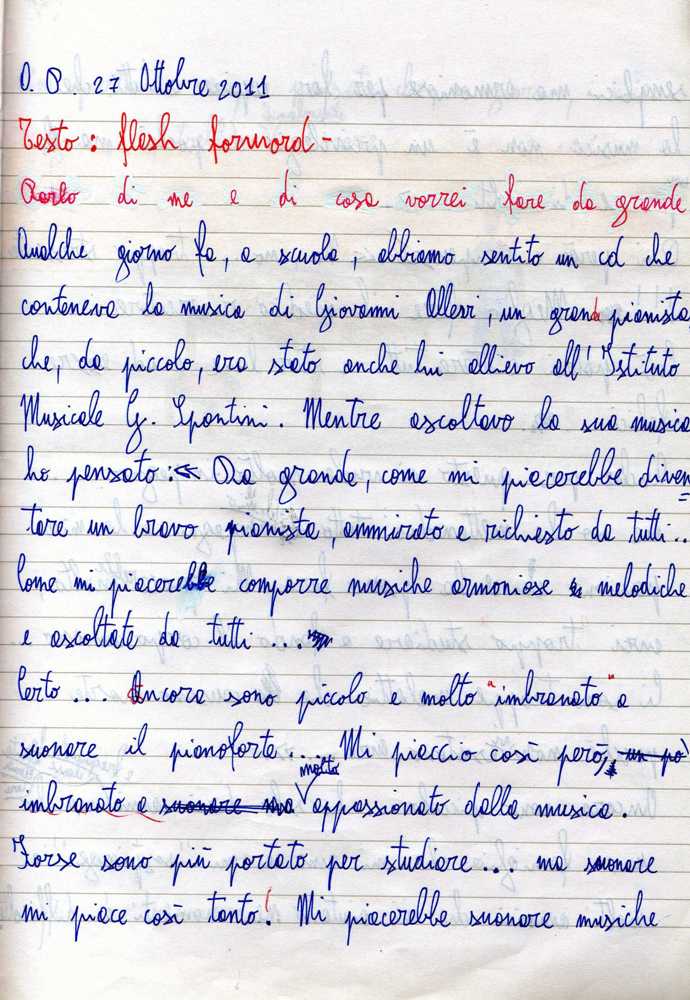 O. P. 27 Ottobre 2011
Testo: flesh forword -
Parlo di me e di cosa vorrei fare da grande
Qualche giorno fa, a scuola, abbiamo sentito un cd che
conteneva la musica di Giovanni Allevi, un grand pianista
che, da piccolo, era stato anche lui allievo all'Istituto
Musicale G. Spontini. Mentre ascoltavo la sua musica
ho pensato: « Da grande, come mi piacerebbe diven
tare un bravo pianista, ammirato e richiesto da tutti..
Come mi piacerebbe comporre musiche armoniose e melodiche
e ascoltate da tutti ...
Certo ... Ancora sono piccolo e molto "imbranato" a
suonare il pianoforte .... Mi piaccio così però, un pò
imbranato a suonare ma molto appassionato dalla musica.
Forse sono più portato per studiare ... ma suonare
mi piace così tanto! Mi piacerebbe suonare musiche